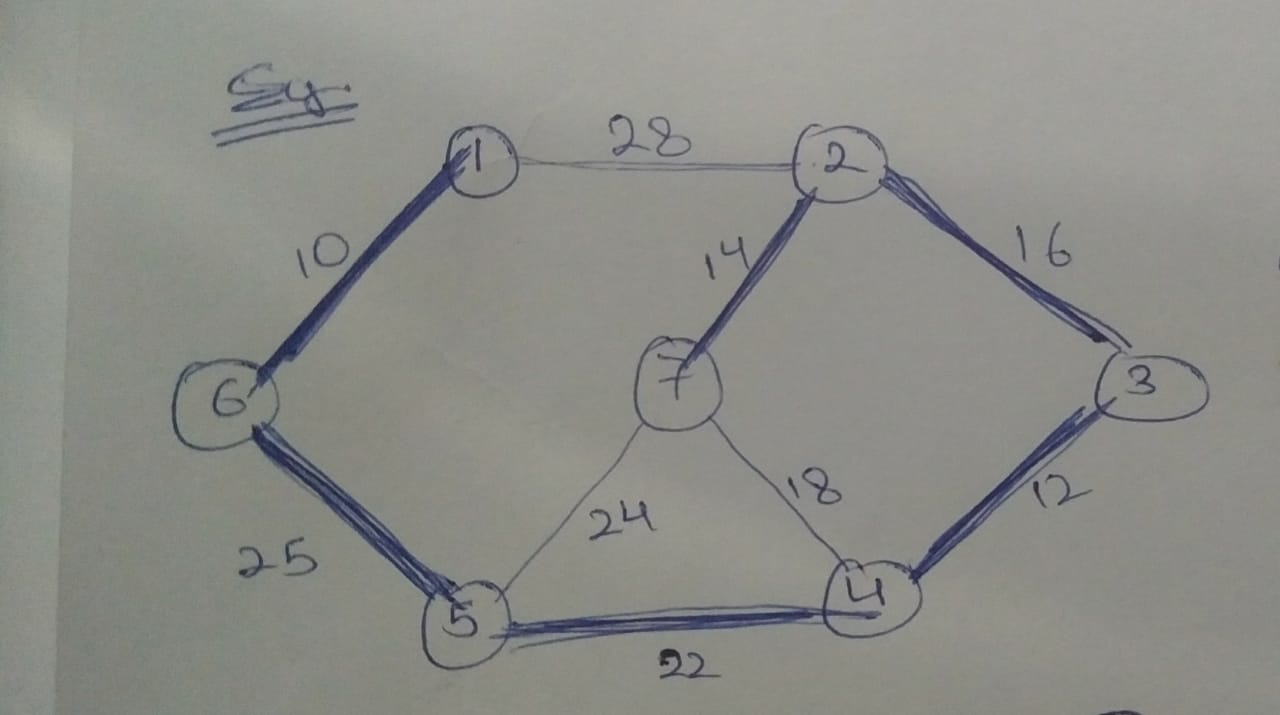 Eg.
28
1
2
10
14
16
6
7
3
24
18
12
25
5
4
22